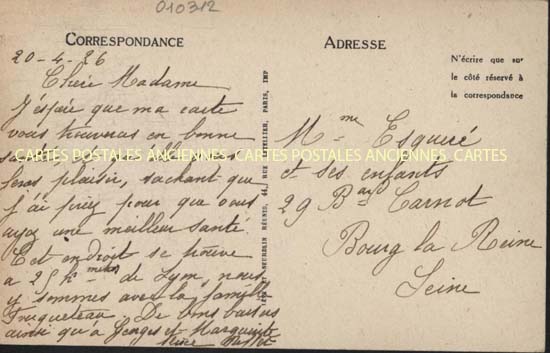 010312
CORRESPONDANCE
ADRESSE
N'écrire que sur
le côté réservé à
la correspondance
20-4-26
Chère Madame
J'éspère que ma carte
vous trouveras en bonne
feras plaisir, sachant que
j'ai priez pour que vous
ayez une meilleur santé.
Cet endroit se trouve
a 25 K de Lyon, nous
y sommes avec la famille
Fruqueteau. De bons baisers
ainsi qu'a Georges et Marguerite
CARTES POSTALES ANCIENNES CARTES POSTALES ANCIENNES CARTES
RÉUNIS, 44, RUE LETELLIER, PARIS, IMP
Mme Esqueré
et ses enfants
29 Bard Carnot
Bourg la Reine
Seine